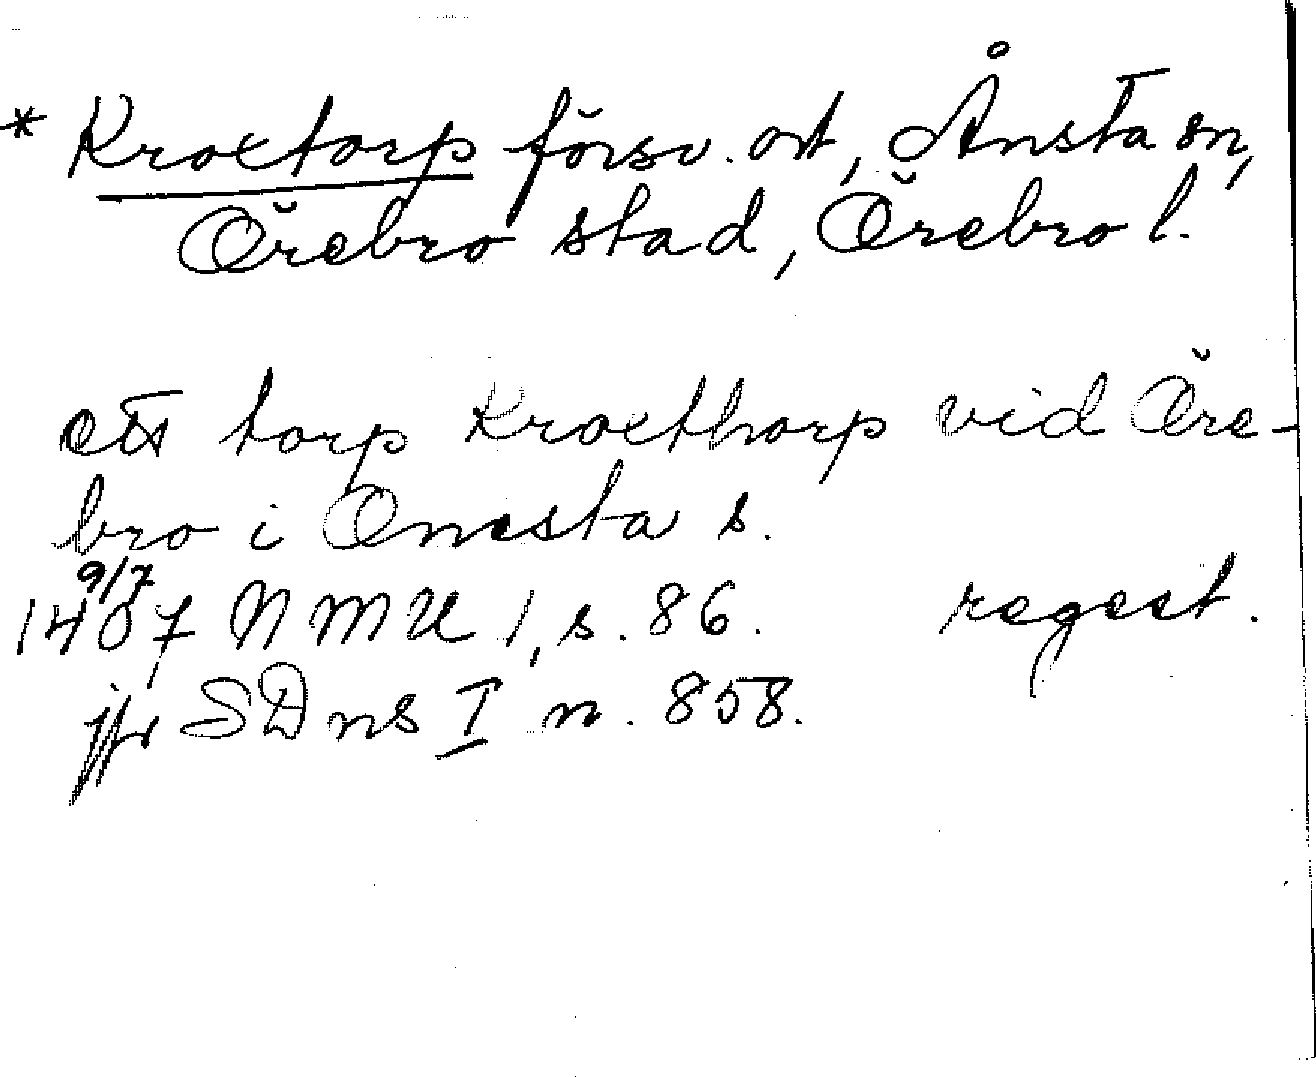 * Kroxtorp försv. ort, Ånsta sn,
Örebro stad, Örebro l.
ett torp Kroxthorp vid Öre-
bro i Onesta s.
9/7
1407 NMU 1, s. 86. regest.
jfr SDns I n. 858.